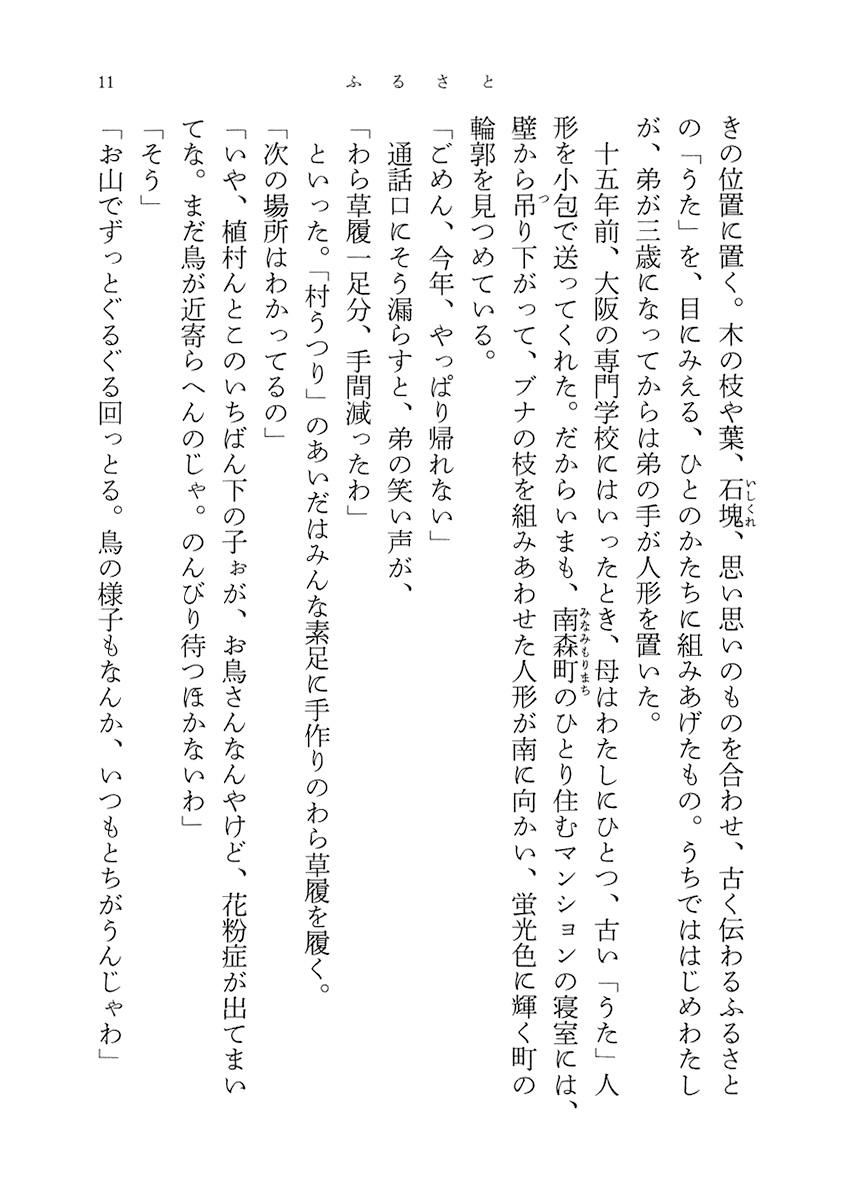 11
ふるさと
きの位置に置く。木の枝や葉、石塊、思い思いのものを合わせ、古く伝わるふるさと
の「うた」を、目にみえる、ひとのかたちに組みあげたもの。うちでははじめわたし
が、弟が三歳になってからは弟の手が人形を置いた。
十五年前、大阪の専門学校にはいったとき、母はわたしにひとつ、古い「うた」人
形を小包で送ってくれた。だからいまも、南森町のひとり住むマンションの寝室には、
壁から吊り下がって、ブナの枝を組みあわせた人形が南に向かい、蛍光色に輝く町の
輪郭を見つめている。
「ごめん、今年、やっぱり帰れない」
通話口にそう漏らすと、弟の笑い声が、
「わら草履一足分、手間減ったわ」
といった。「村うつり」のあいだはみんな素足に手作りのわら草履を履く。
「次の場所はわかってるの」
「いや、植村んとこのいちばん下の子ぉが、お鳥さんなんやけど、花粉症が出てまい
てな。まだ鳥が近寄らへんのじゃ。のんびり待つほかないわ」
「そう」
「お山でずっとぐるぐる回っとる。鳥の様子もなんか、いつもとちがうんじゃわ」
いしくれ
みなみもりまち
つ